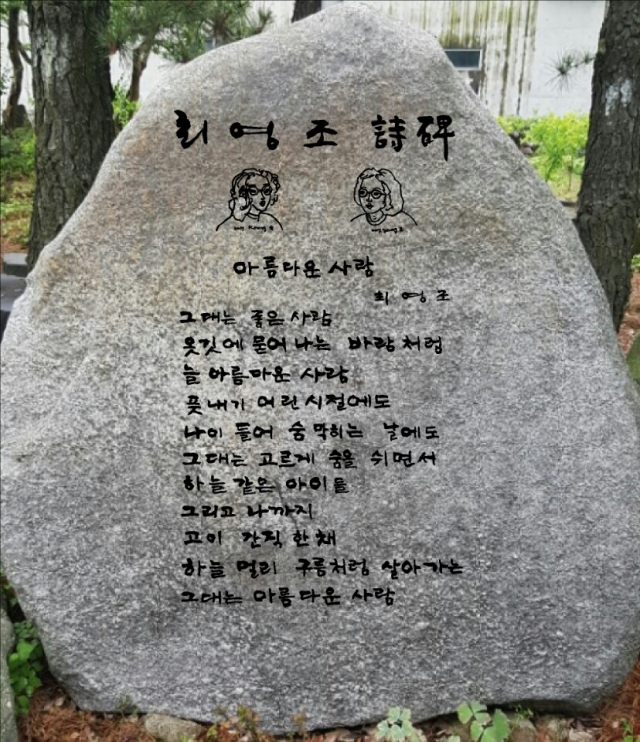 최영조 詩碑
아름다운 사람
최영조
그대는 좋은 사람
옷깃에 묻어나는 바람처럼
늘 아름다운 사람
풋내기 어린시절에도
나이 들어 숨막히는 날에도
그대는 고르게 숨을 쉬면서
하늘 같은 아이들
그리고 나까지
고이 간직 한채
하늘 멀리 구름처럼 살아가는
그대는 아름다운 사람